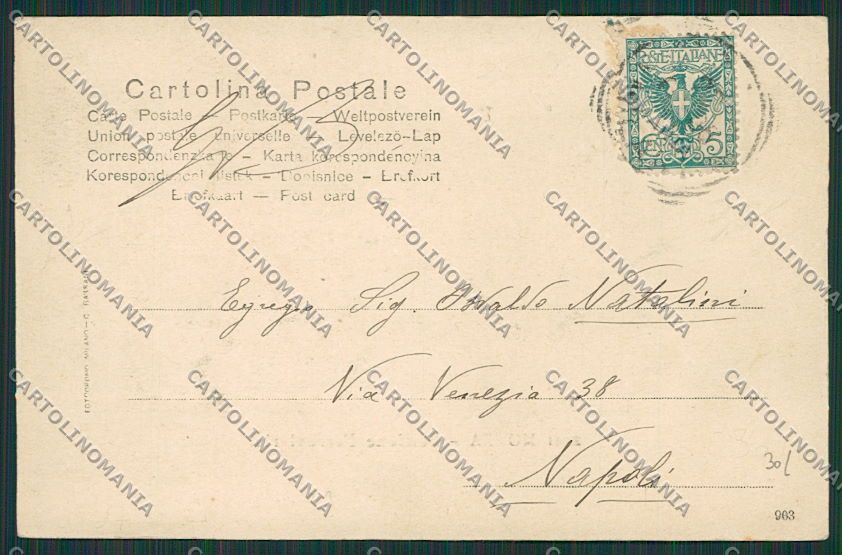 Cartolina Postale
Carte Postale – Postkarte – Weltpostverein
Union postale universelle – Levelezö-Lap
Correspondenzkarte – Karta korespondencyjna
Korespondencni listek – Dopisnice – Brefkort
Brefkaart — Post card
POSTE·ITALIANE
CENT. 5
Egregio Sig. Osvaldo Natalini
Via Venezia 38
Napoli
30/
903
FOTOCROMO MILANO – C.
CARTOLINOMANIA